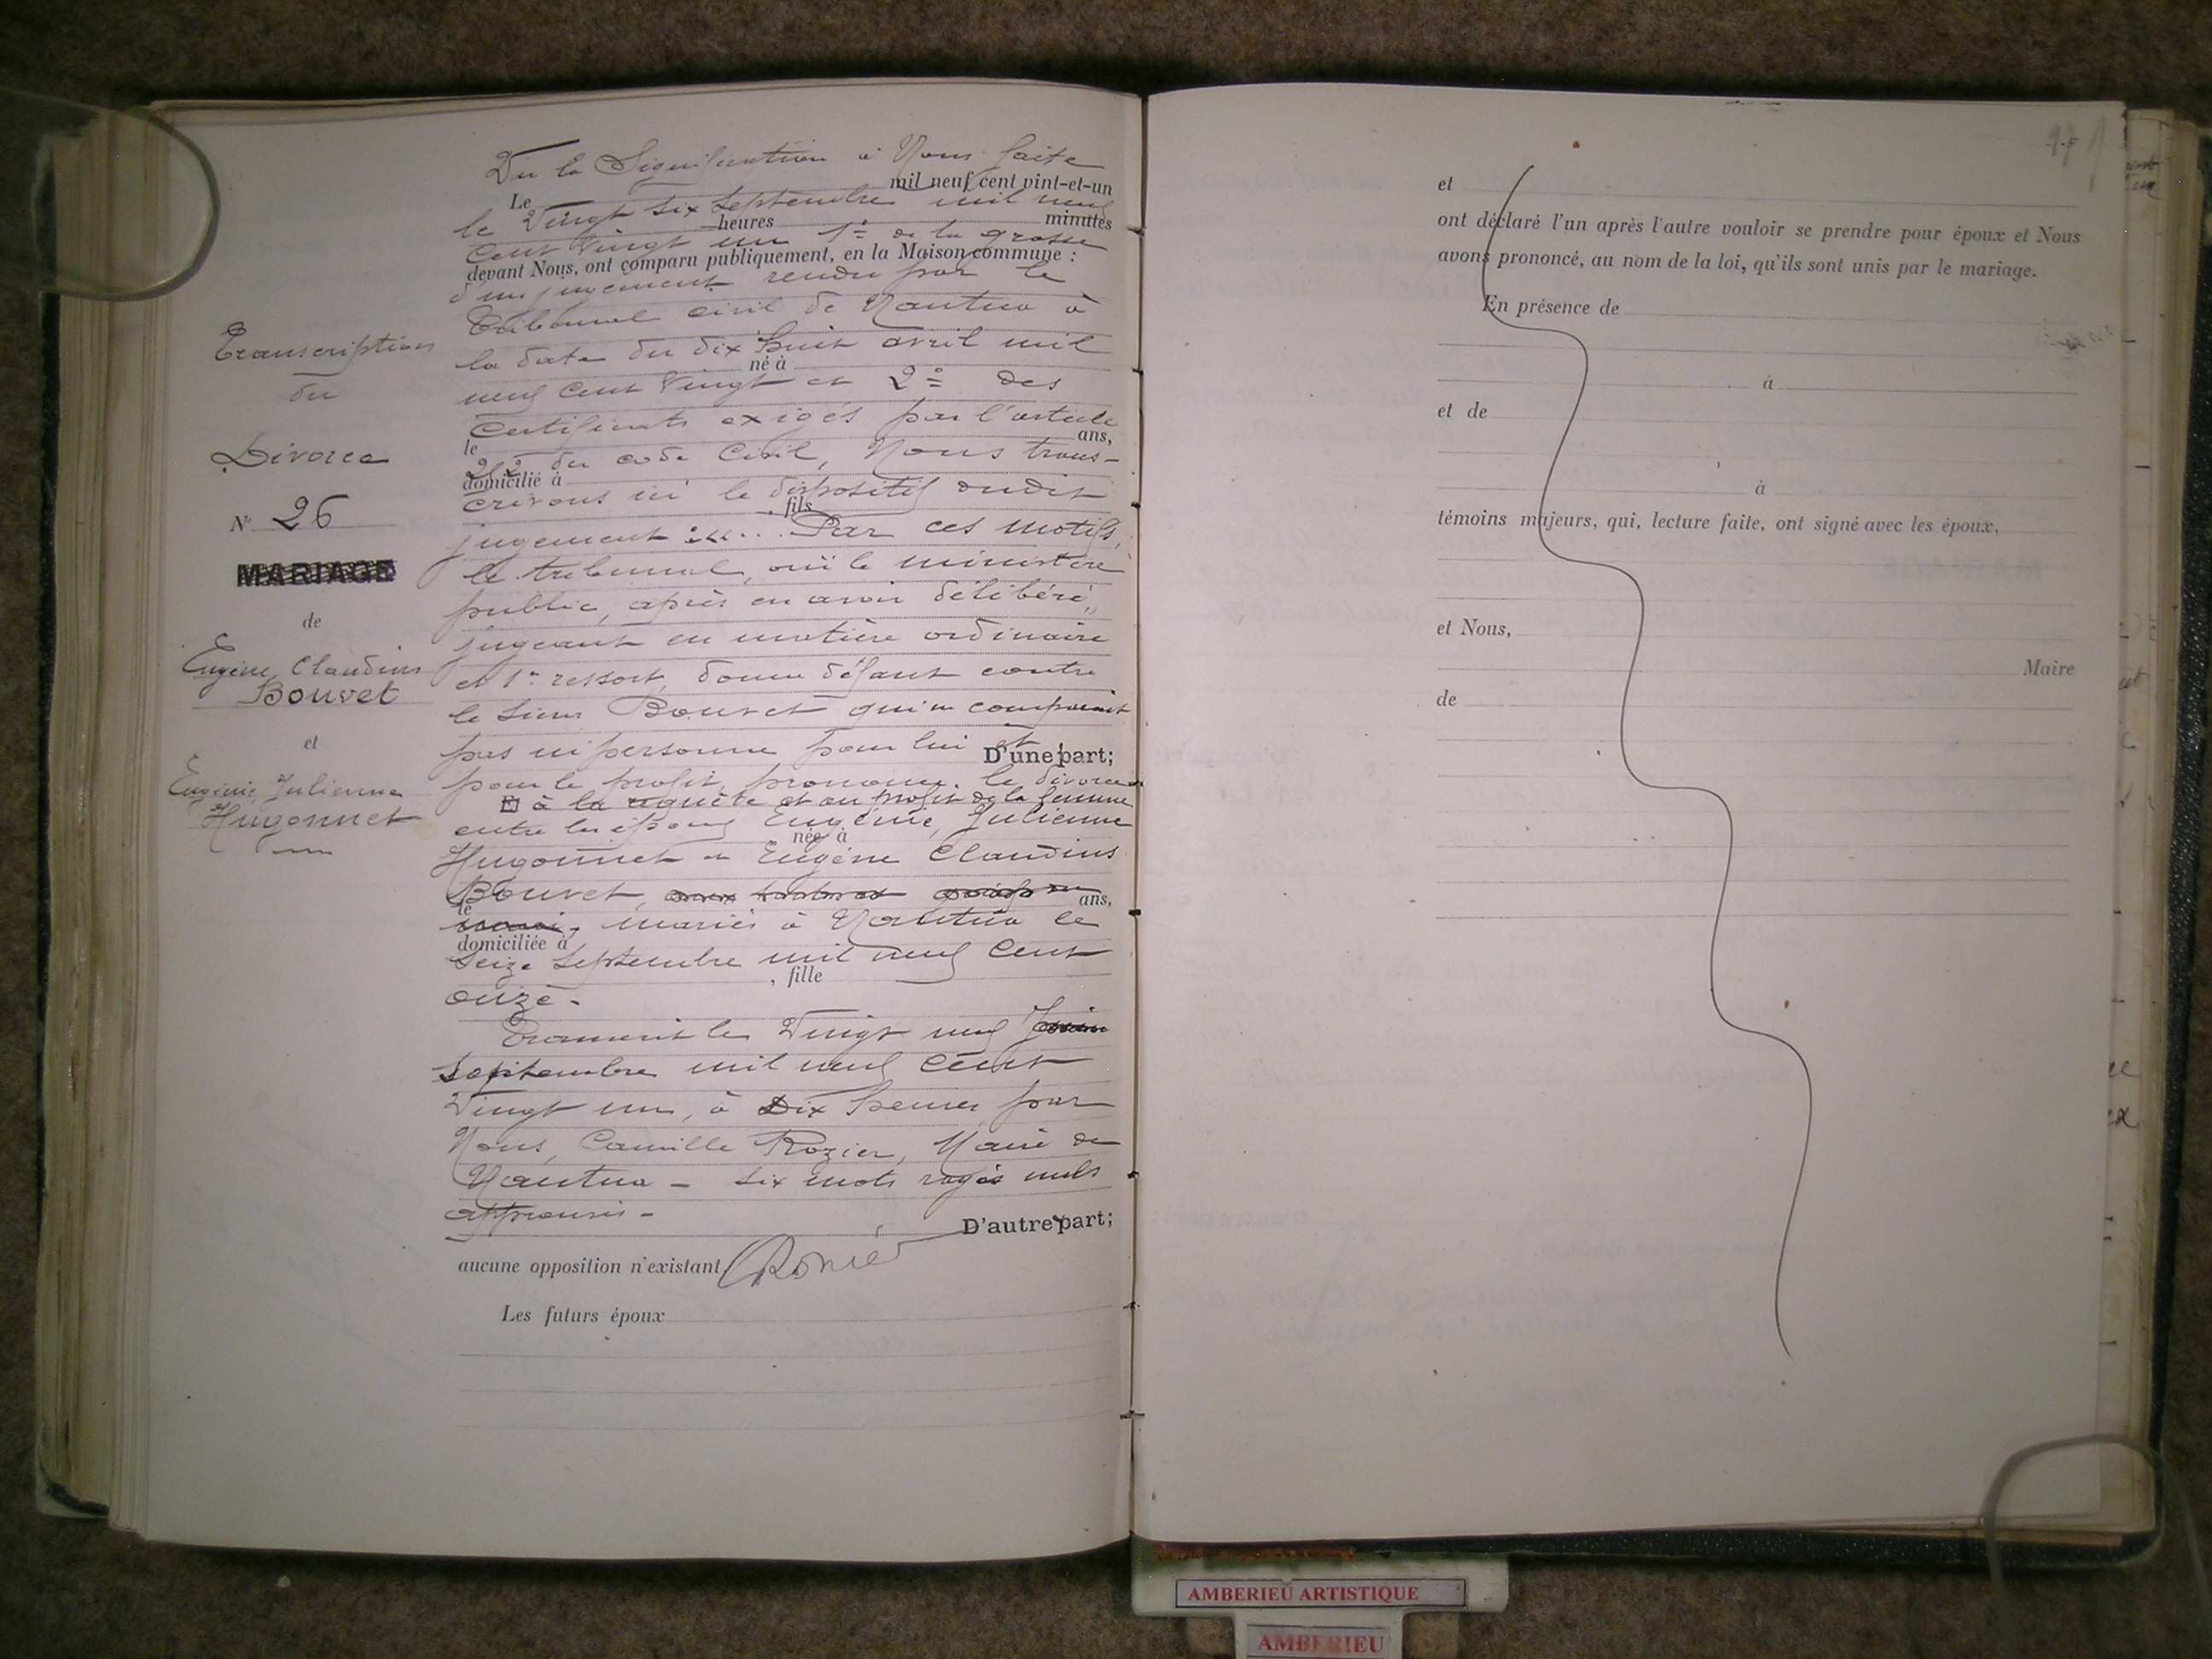 Transcription
du
Divorce
N° 26
MARIAGE
de
Eugène, Claudius
Bouvet
et
Eugénie, Julienne
Hugonnet
Vu la Signification à Nous faite
mil neuf cent vint-et-un
Le
le Vingt six Septembre mil neuf
heures minutes
Cent Vingt un 1° de la grosse
devant Nous, ont comparu publiquement, en la Maison commune :
d'un jugement rendu par le
Tribunal civil de Nantua à
la date du dix huit avril mil
né à
neuf Cent Vingt et 2° des
Certificats exigés par l'article
ans,
le
252 du code Civil, Nous trans-
domicilié à
crivons ici le dispositif dudit
, fils
jugement : «... Par ces motifs,
le tribunal, ouï le ministère
public, après en avoir délibéré,
jugeant en matière ordinaire
et 1er ressort, donne défaut contre
le Sieur Bouvet qui ne comparait
pas ni personne pour lui et
D'une part;
pour le profit prononce le divorce
à la requête et au profit de la femme
entre les époux Eugénie, Julienne
née à
Hugonnet et Eugène Claudius
Bouvet,
ans,
le
mariés à Nantua le
domiciliée à
Seize Septembre mil neuf Cent
, fille
onze.
Transcrit le Vingt neuf
Septembre mil neuf Cent
Vingt un, à Dix heures par
Nous, Camille Rozier, Maire de
Nantua - Six mots rayés nuls
approuvés -
D'autre part;
aucune opposition n'existant.
Les futurs époux
97
et
ont déclaré l'un après l'autre vouloir se prendre pour époux et Nous
avons prononcé, au nom de la loi, qu'ils sont unis par le mariage.
En présence de
à
et de
à
témoins majeurs, qui, lecture faite, ont signé avec les époux,
et Nous,
Maire
de
AMBERIEU ARTISTIQUE
AMBERIEU